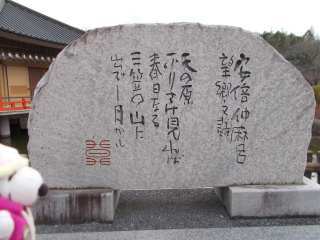 安倍仲麻呂
望郷の詩
天の原
ふりさけ見れば
春日なる
三笠の山に
出でし月かも